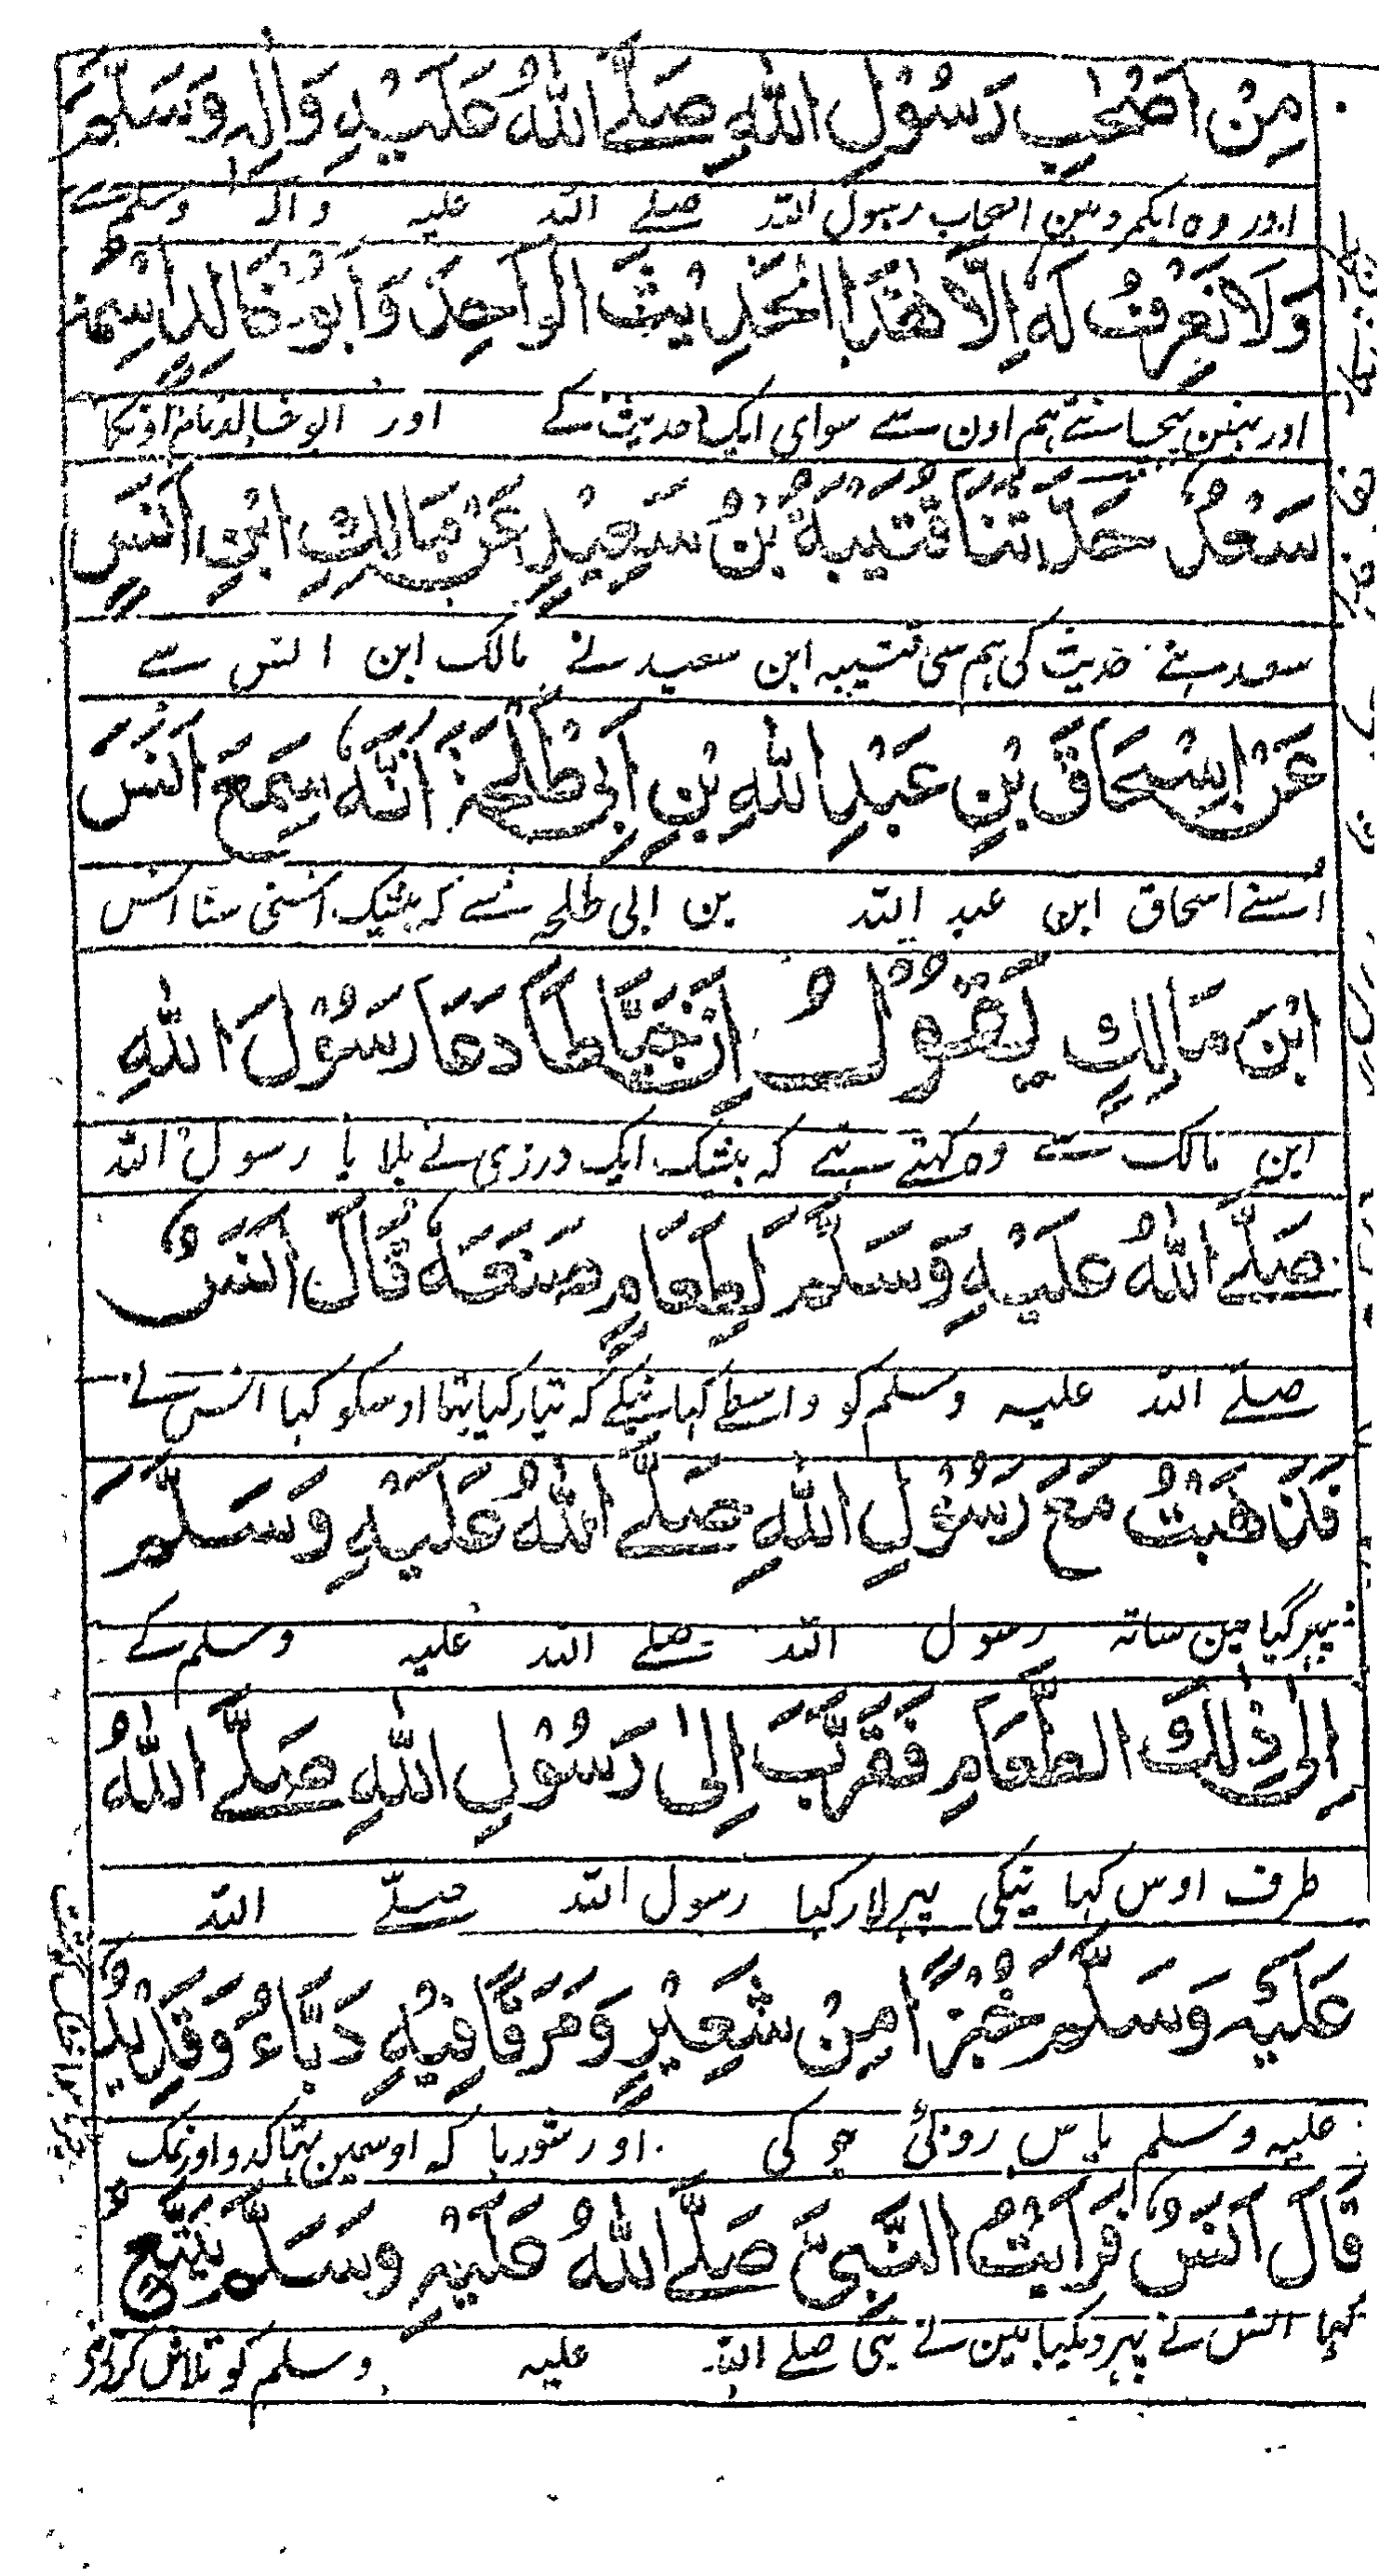 مِنْ اَصْحٰبِ رَسُوْلِ اللّٰهِ صَلَّے اللّٰهُ عَلَيْهِ وَاٰلِهٖ وَسَلَّمَ
اور وہ ایکمرد ہین اصحاب رسول اللہ صلے اللہ علیہ واٰلہ وسلم سے
وَلَا نَعْرِفُ لَهٗ اِلَّا هٰذَا الْحَدِيْثَ الْوَاحِدَ وَاَبُوْ خَالِدٍ اِسْمُهٗ
اور نہین پہچانتے ہم اون سے سوای ایک حدیث کے اور ابو خالد نام اونکا
سَعْدٌ حَدَّثَنَا قُتَيْبَةُ بْنُ سَعِيْدٍ عَنْ مَالِكِ ابْنِ اَنَسٍ
سعد ہے حدیث کی ہم سی قتیبہ ابن سعید نے مالک ابن انس سے
عَنْ اِسْحَاقَ بْنِ عَبْدِ اللّٰهِ بْنِ اَبِيْ طَلْحَةَ اَنَّهٗ سَمِعَ اَنَسَ
اُسنے اسحاق ابن عبد اللہ بن ابی طلحہ سے کہ بیشک اسنی سنا انس
ابْنَ مَالِكٍ يَقُوْلُ اِنَّ خَيَّاطًا دَعَا رَسُوْلَ اللّٰهِ
ابن مالک سے وہ کہتے تہے کہ بیشک ایک درزی نے بلایا رسول اللہ
صَلَّے اللّٰهُ عَلَيْهِ وَسَلَّمَ لِطَعَامٍ صَنَعَهٗ قَالَ اَنَسٌ
صلے اللہ علیہ وسلم کو واسطے کہانیکے کہ تیار کیا تہا اوسکو کہا انس نے
فَذَهَبْتُ مَعَ رَسُوْلِ اللّٰهِ صَلَّے اللّٰهُ عَلَيْهِ وَسَلَّمَ
پہر گیا مین ساتہ رسول اللہ صلے اللہ علیہ وسلم کے
اِلٰى ذٰلِكَ الطَّعَامِ فَقَرَّبَ اِلٰى رَسُوْلِ اللّٰهِ صَلَّے اللّٰهُ
طرف اوس کہانیکی پہر لا رکہا رسول اللہ صلّے اللہ
عَلَيْهِ وَسَلَّمَ خُبْزًا مِنْ شَعِيْرٍ وَمَرَقًا فِيْهِ دُبَّاءٌ وَقَدِيْدٌ
علیہ وسلم پاس روٹی جو کی اور شوربا کہ اوسمین تہا کدو اور نمک
قَالَ اَنَسٌ فَرَاَيْتُ النَّبِيَّ صَلَّے اللّٰهُ عَلَيْهِ وَسَلَّمَ يَتَتَبَّعُ
کہا انس نے پہر دیکہا مین نے نبی صلے اللہ علیہ وسلم کو تلاش کرتے